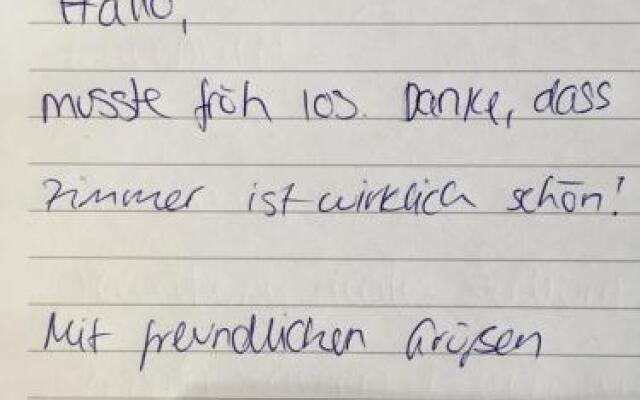 Hallo,
musste früh los. Danke, dass
Zimmer ist wirklich schön!
Mit freundlichen Grüßen